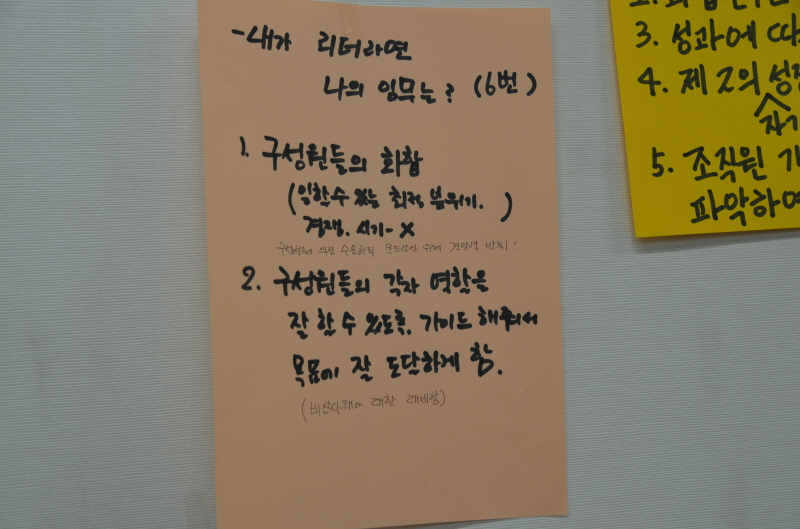 -내가 리더라면
나의 임무는? (6번)
1. 구성원들의 화합
(일할 수 있는 최적 분위기.
경쟁. 시기- X )
구성원들의 의견 수용하되 목표달성 위해 전력 박치!
2. 구성원들의 각자 역할을
잘 할 수 있도록, 가이드 해줘서
목표에 잘 도달하게 함.
(비상사태에 대한 대비함).
3. 성과에 따
4. 제 2의 성장
자기
5. 조직원 개
파악하여